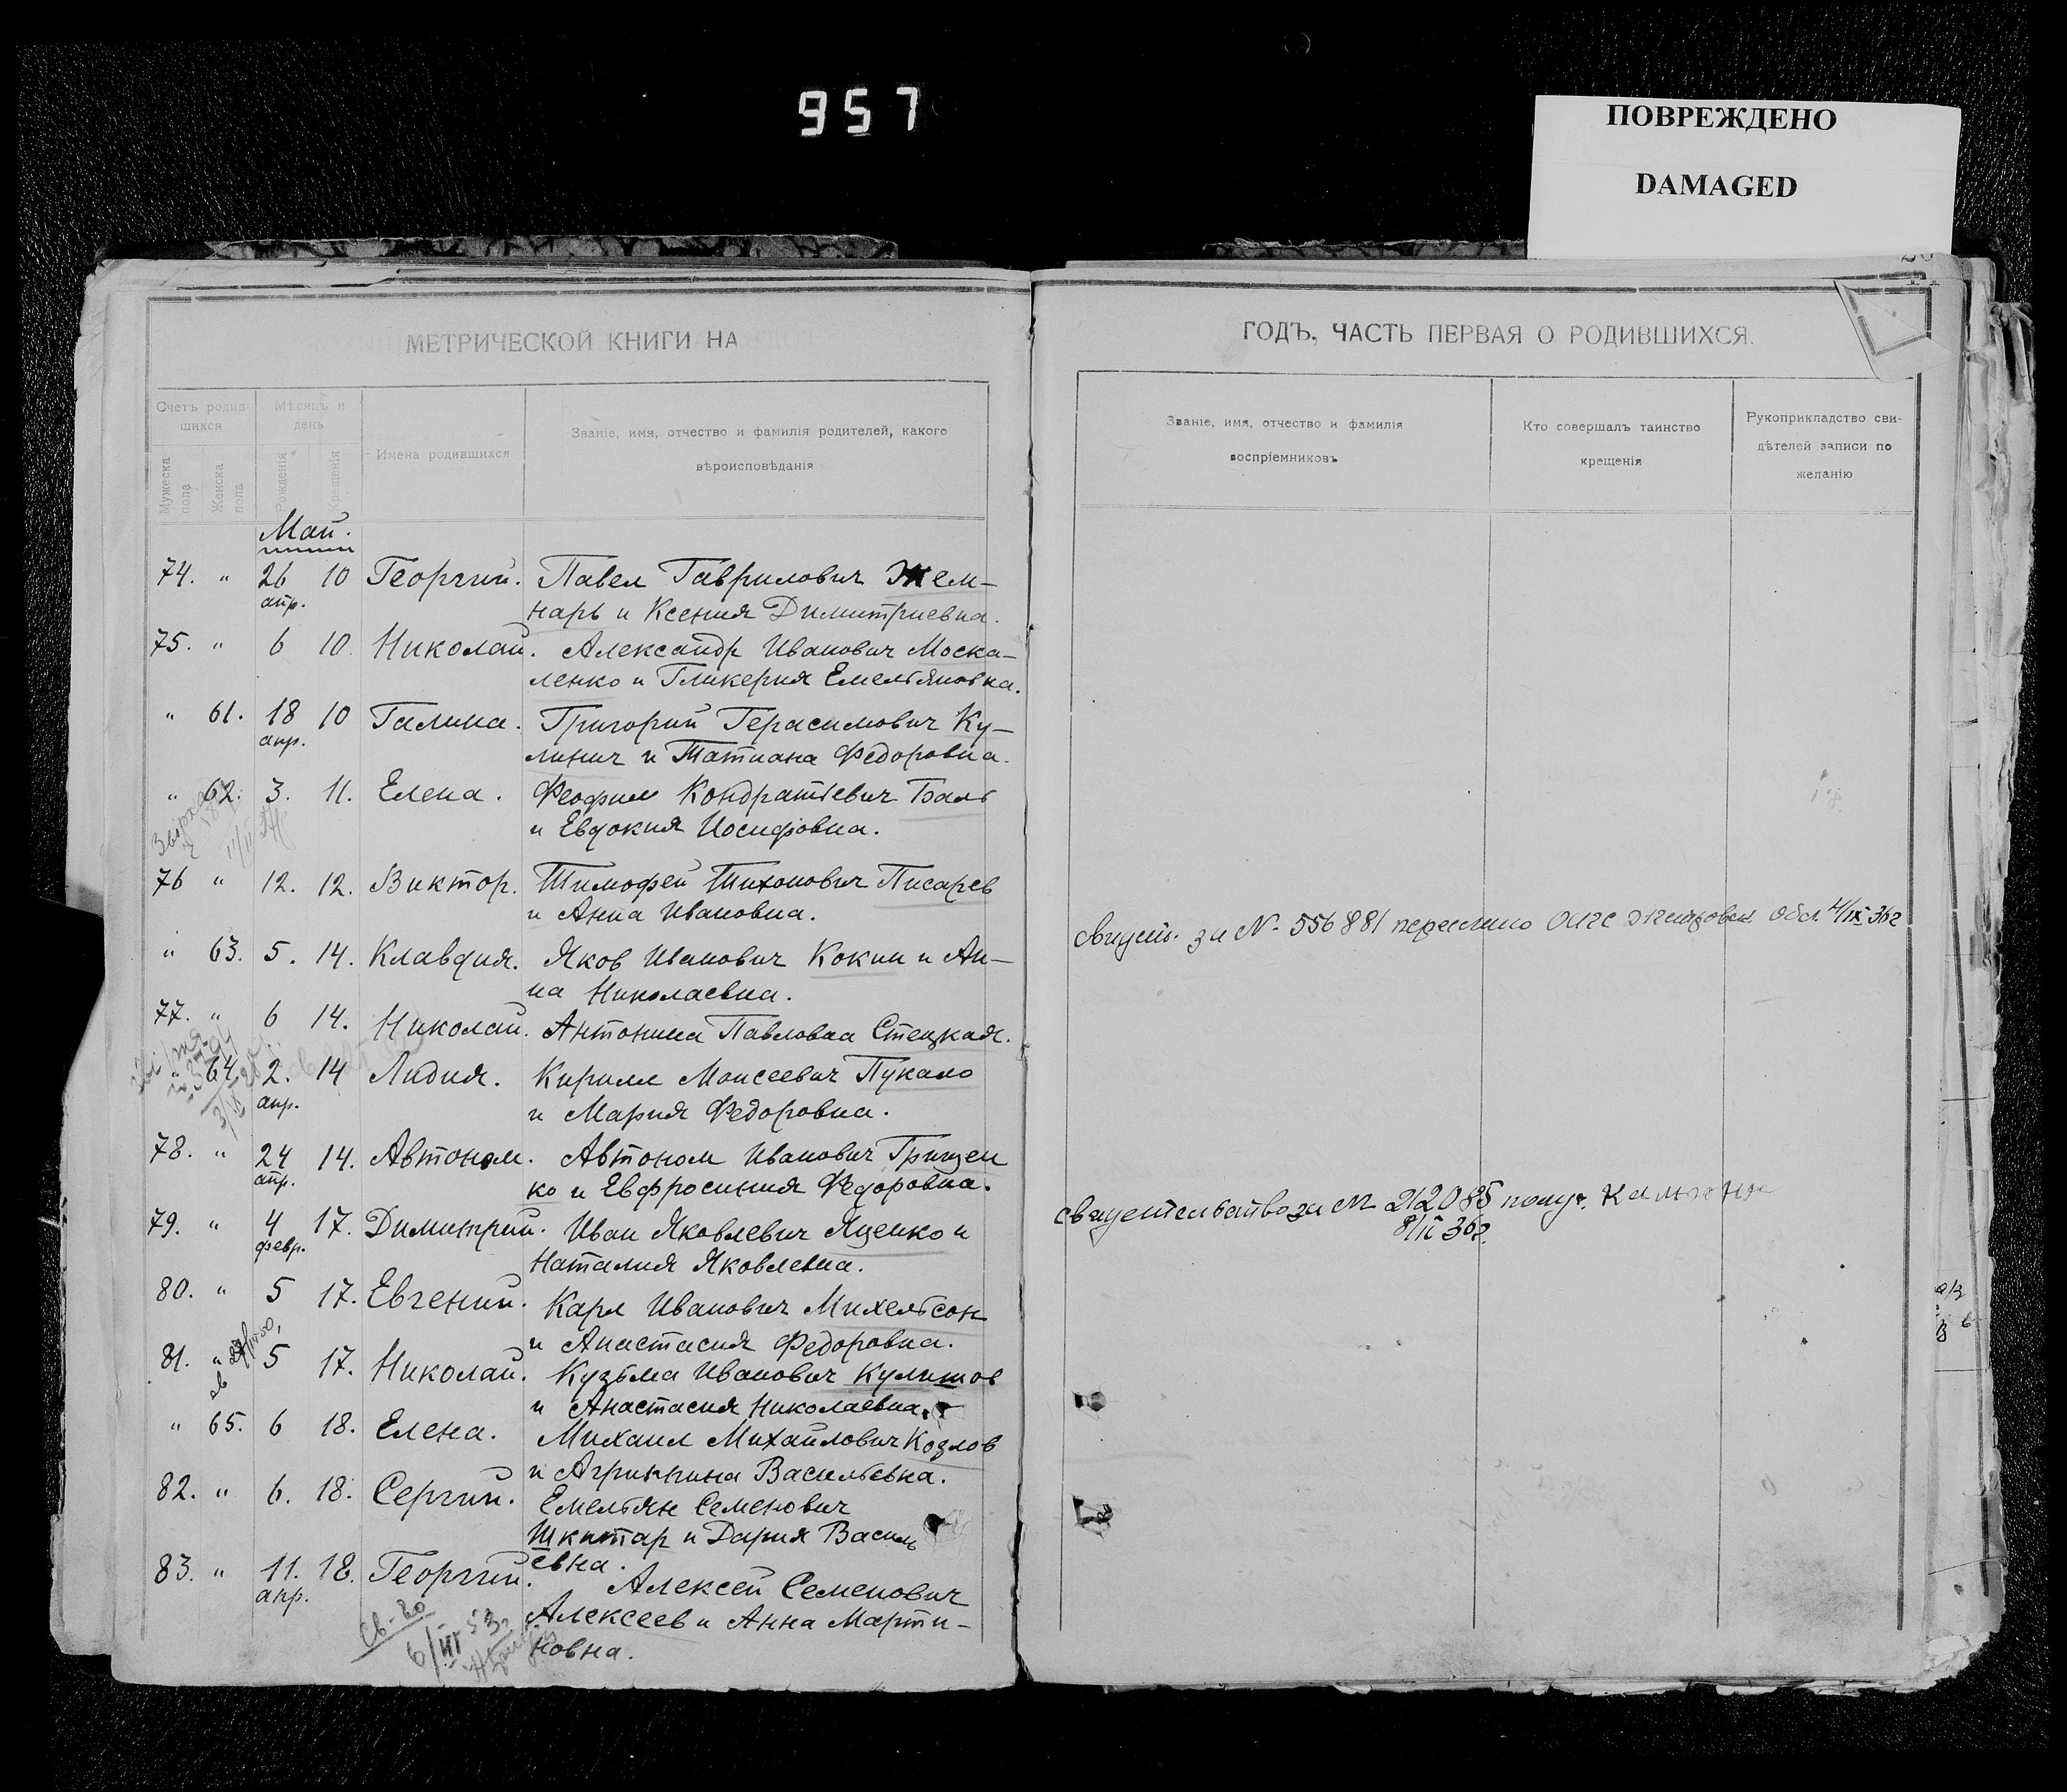 957
ПОВРЕЖДЕНО
DAMAGED
МЕТРИЧЕСКОЙ КНИГИ НА
Счетъ родив-
шихся
Мѣсяцъ и
день
Мужеска
пола
Женска
пола
Рожденія
Крещенія
Имена родившихся
Званіе, имя, отчество и фамилія родителей, какого
вѣроисповѣданія
Май.
74. " 26 10 Георгий. Павел Гаврилович Жем-
апр.
нарь и Ксения Димитриевна.
75. " 6 10. Николай. Александр Иванович Моска-
ленко и Гликерия Емельяновна.
" 61. 18 10 Галина. Григорий Герасимович Ку-
апр.
линич и Татиана Федоровна.
" 62. 3. 11. Елена. Феофил Кондратьевич Баль
и Евдокия Иосифовна.
76 " 12. 12. Виктор. Тимофей Тихонович Писарев
и Анна Ивановна.
" 63. 5. 14. Клавдия. Яков Иванович Кокин и Ан-
на Николаевна.
77. " 6 14. Николай. Антонина Павловна Стецкая.
" 64. 2. 14 Лидия. Кирилл Моисеевич Пукало
апр.
и Мария Федоровна.
78. " 24 14. Автоном. Автоном Иванович Грицен
апр.
ко и Евфросиния Федоровна.
79. " 4 17. Димитрий. Иван Яковлевич Яценко и
февр.
Наталия Яковлевна.
80. " 5 17. Евгений. Карл Иванович Михельсон
и Анастасия Федоровна.
81. " 5 17. Николай. Кузьма Иванович Кулишов
и Анастасия Николаевна.
" 65. 6 18. Елена. Михаил Михайлович Козлов
и Агриппина Васильевна.
82. " 6. 18. Сергий. Емельян Семенович
Шкитар и Дария Василь
евна.
83. " 11. 18. Георгий. Алексей Семенович
апр.
Алексеев и Анна Марти-
новна.
Св-во
6/VI 53г
ГОДЪ, ЧАСТЬ ПЕРВАЯ О РОДИВШИХСЯ.
Званіе, имя, отчество и фамилія
воспріемниковъ
Кто совершалъ таинство
крещенія
Рукоприкладство сви-
дѣтелей записи по
желанію
свидет. за N. 556881 переслано Обл. 4/IX 36г
свидетельство за № 212085 получ.
8/II 36г.